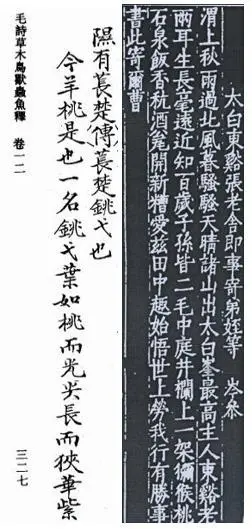 太白東谿張老舍即事寄弟姪等 岑參
渭上秋雨過北風暮騷騷天晴諸山出太白峯最高主人東谿老
兩耳生長毫遠近知百歲子孫皆二毛中庭井欄上一架獼猴桃
石泉飯香秔酒瓮開新糟愛茲田中趣始悟世上勞我行有勝事
書此寄爾曹
隰有萇楚傳萇楚銚弋也
今羊桃是也一名銚弋葉如桃而光尖長而狹華紫
毛詩草木鳥獸蟲魚釋 卷一二
三二七